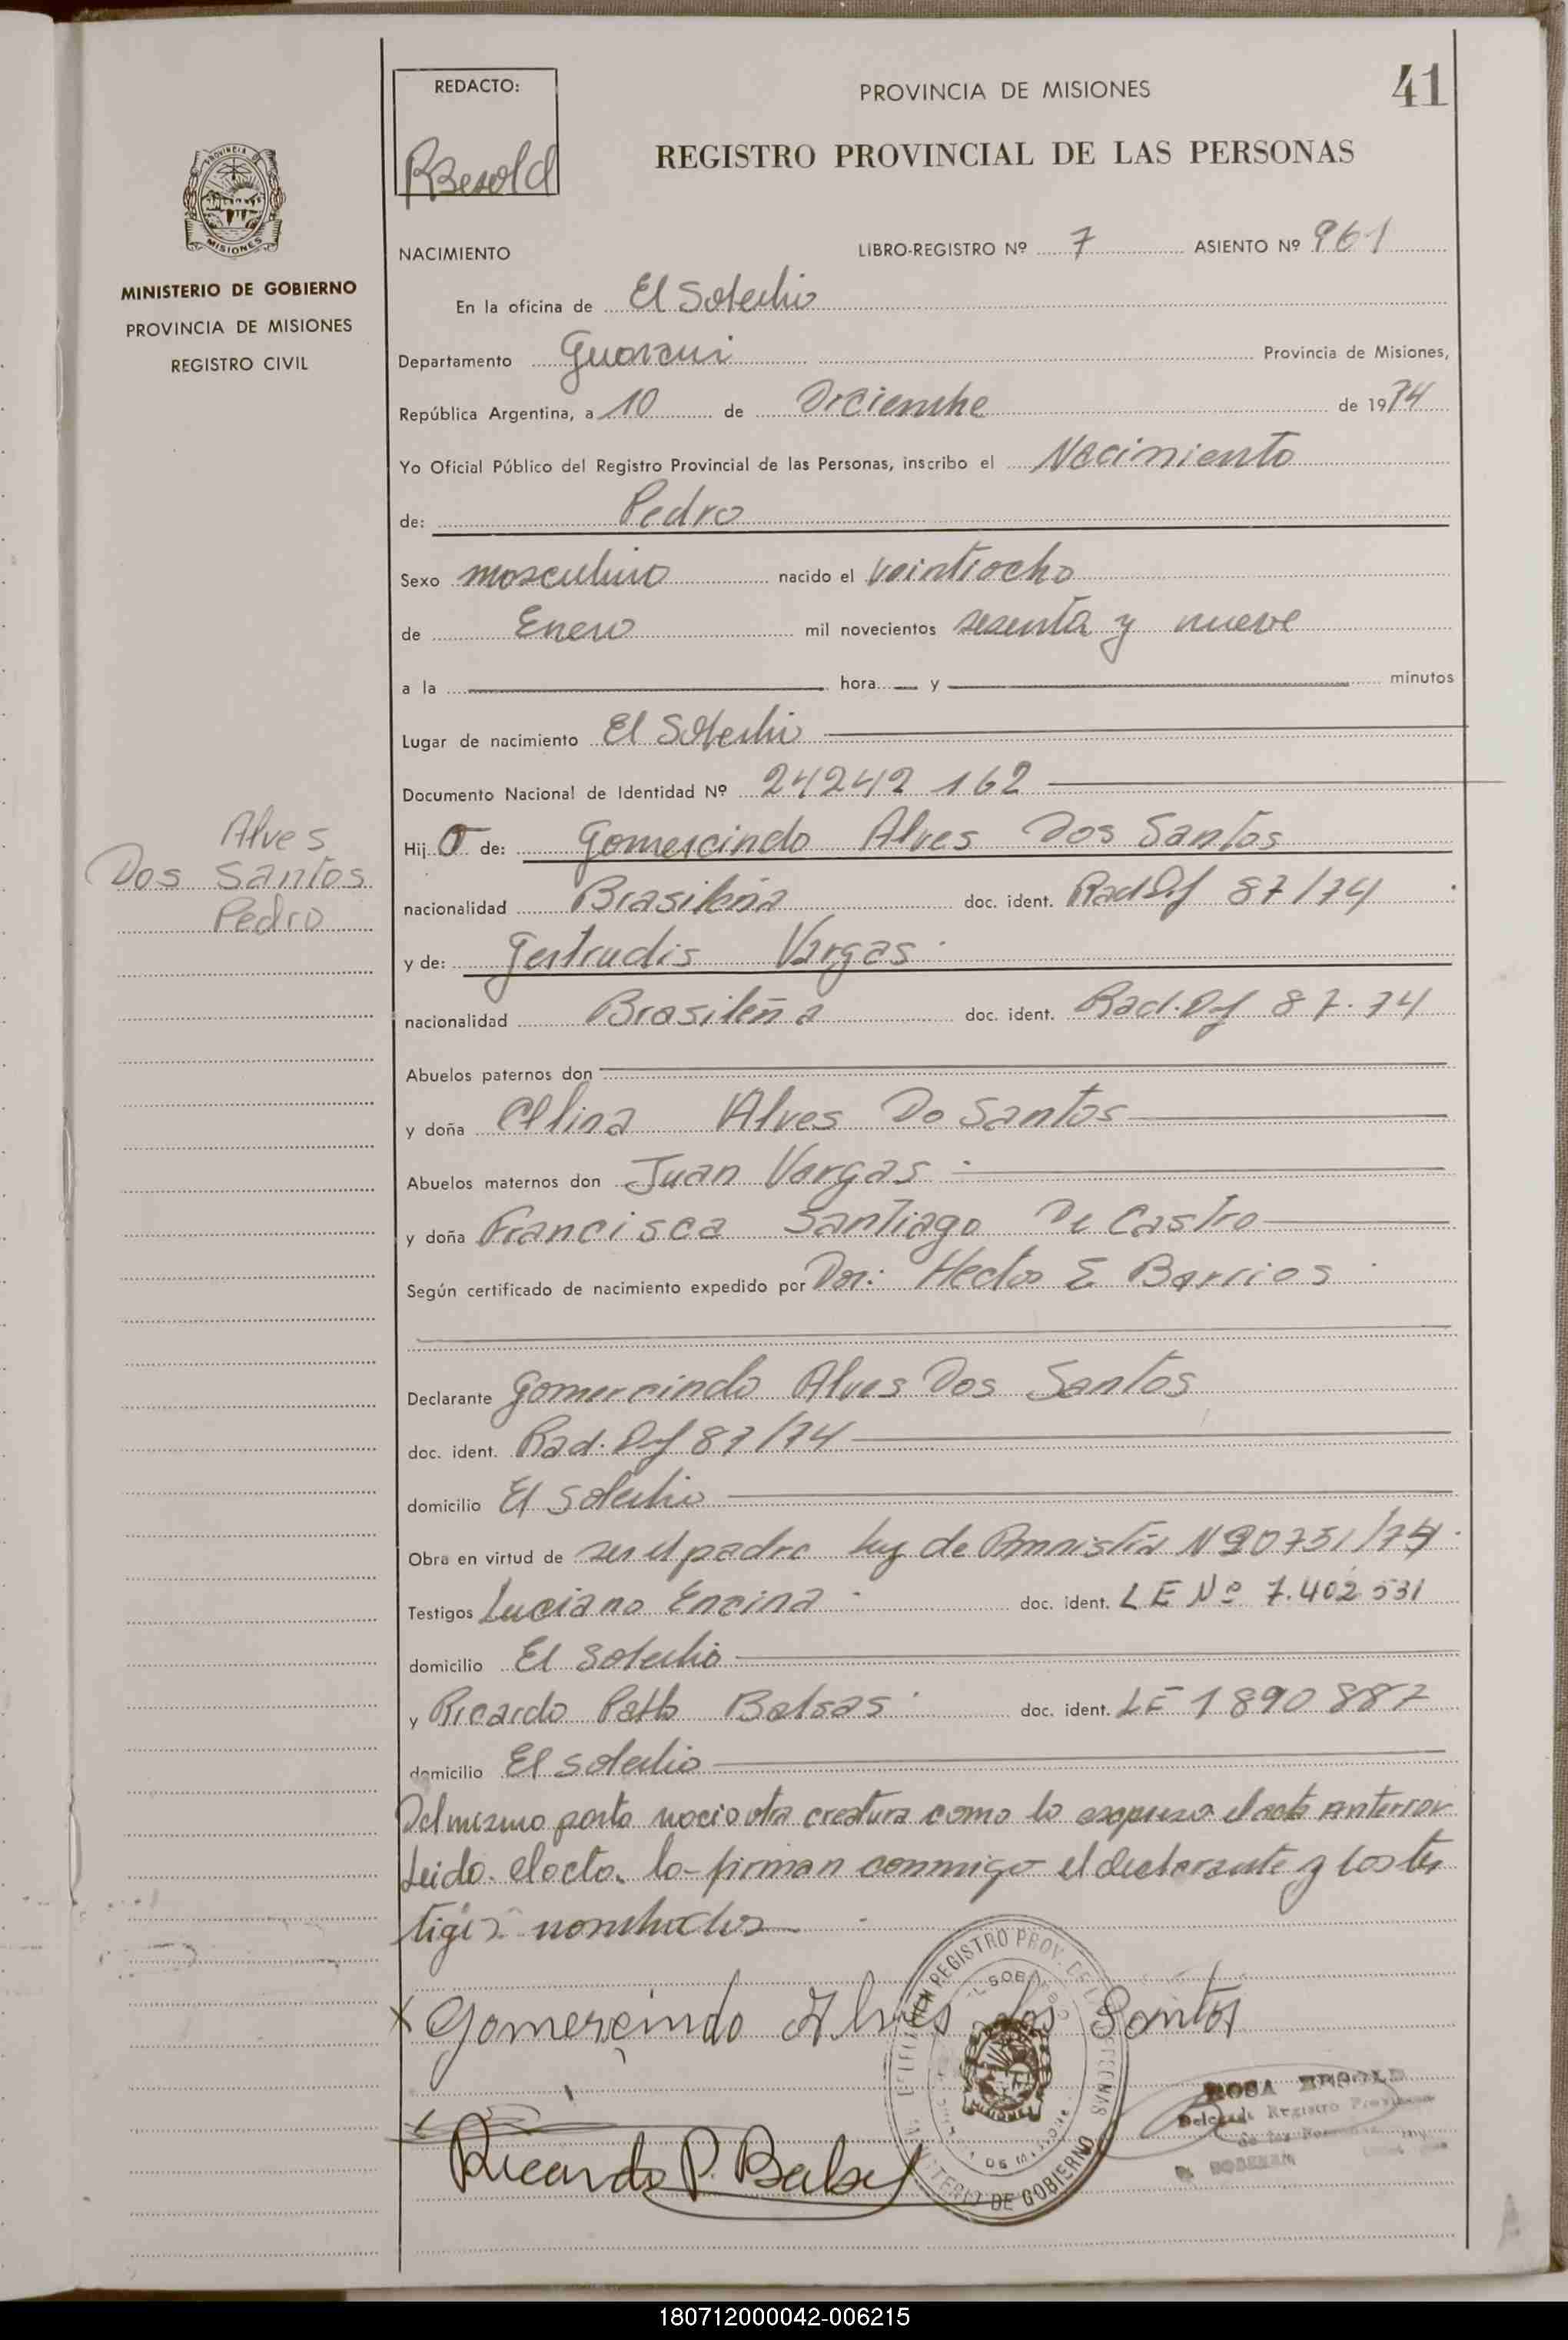 41
REDACTO:
PROVINCIA DE MISIONES
REGISTRO PROVINCIAL DE LAS PERSONAS
RBesold
PROVINCIA DE
MISIONES
MINISTERIO DE GOBIERNO
PROVINCIA DE MISIONES
REGISTRO CIVIL
NACIMIENTO LIBRO-REGISTRO Nº 7 ASIENTO Nº 961
En la oficina de El Soberbio
Departamento Guarani Provincia de Misiones,
República Argentina, a 10 de Diciembre de 1974
Yo Oficial Público del Registro Provincial de las Personas, inscribo el Nacimiento
de: Pedro
Sexo masculino nacido el veintiocho
de Enero mil novecientos sesenta y nueve
a la hora y minutos
Lugar de nacimiento El Soberbio
Documento Nacional de Identidad Nº 24242 162
Alves
Dos Santos
Pedro
Hij o de: Gomercindo Alves Dos Santos
nacionalidad Brasileña doc. ident. Rad Df 87/74
y de: Gertrudis Vargas
nacionalidad Brasileña doc. ident. Rad. Df 87.74
Abuelos paternos don
y doña Alves Do Santos
Abuelos maternos don Juan Vargas
y doña Francisca Santiago De Castro
Según certificado de nacimiento expedido por Dor: Hector E Barrios
Declarante Gomercindo Alves Dos Santos
doc. ident. Rad. Df 87/74
domicilio El Soberbio
Obra en virtud de ser el padre Ley de Amnistia N 20751/74
Testigos Luciano Encina doc. ident. LE Nº 7.402 531
domicilio El Soberbio
y Ricardo Balsas doc. ident. LE 1890 887
domicilio El Soberbio
Del mismo parto nacio otra creatura como lo expresa el acta anterior
Leido el acta lo firman conmigo el declarante y los tes
tigos nombrados
Gomercindo Alves dos Santos
Ricardo P.
REGISTRO PROV. DE
MINISTERIO DE GOBIERNO
MISIONES
ROSA BESOLD
Delegada Registro Provincial
de las Personas
180712000042-006215